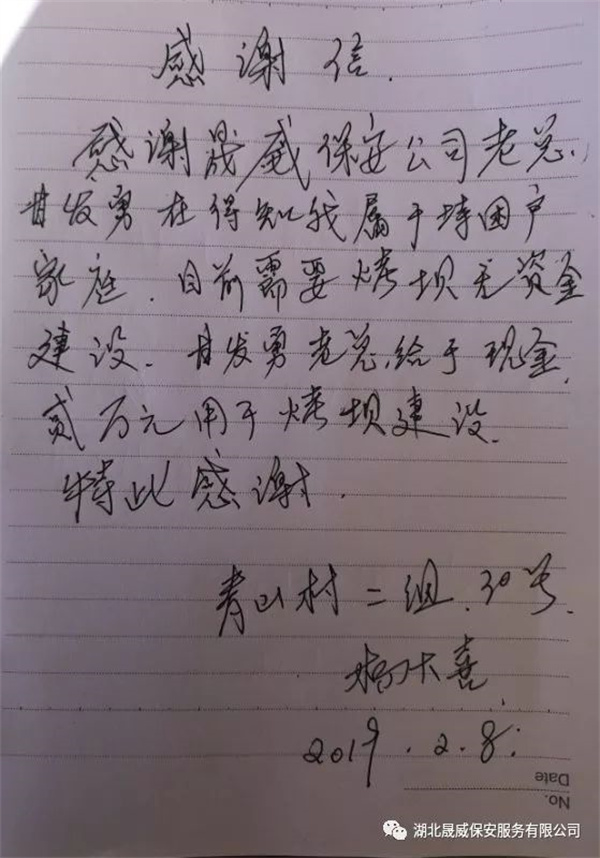 感谢信.
感谢晟威保安公司老总、
甘发勇在得知我属于特困户
家庭.目前需要烤坝无资金
建设.甘发勇老总.给于现金
贰万元用于烤坝建设.
特此感谢.
青山村二组.30号.
大喜
2019.2.8.
No.
Date
湖北晟威保安服务有限公司